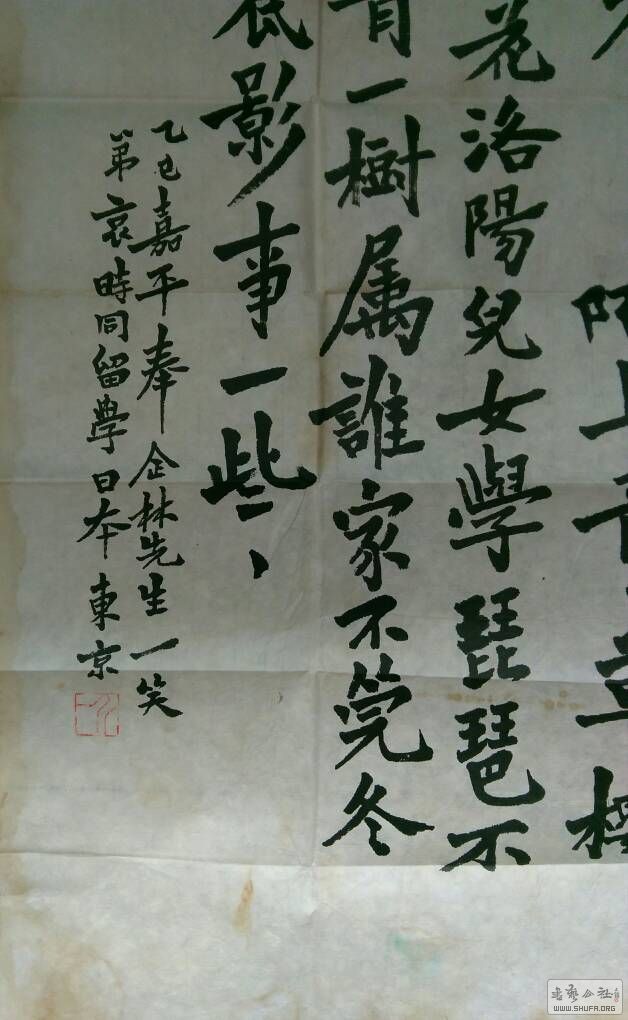 上
花洛陽兒女學琵琶不
青一樹属誰家不筦冬
底影事一些、
乙巳嘉平奉 企林先生一笑
弟哀時同留學日本東京
书艺公社
WWW.SHUFA.ORG